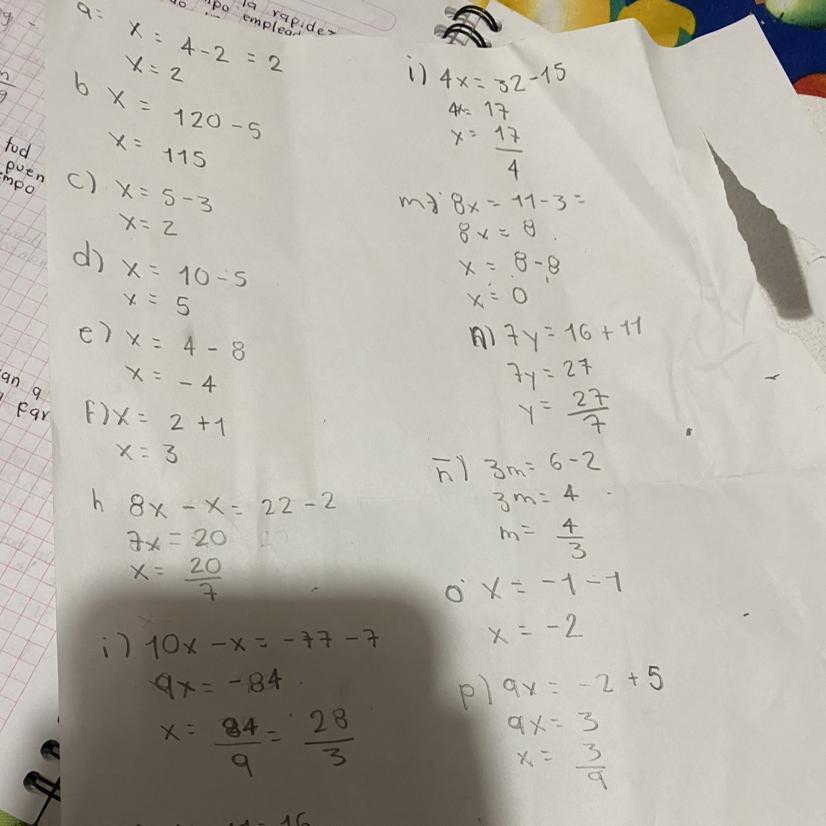 la rapidez
mpo emplead
tud
puen
mpo
an a
par
a= x = 4-2 = 2
x = 2
b x = 120-5
x = 115
c) x = 5-3
x = 2
d) x = 10-5
x = 5
e) x = 4-8
x = -4
f) x = 2+1
x = 3
h 8x - x = 22-2
7x = 20
x = 20/7
i) 10x - x = -77-7
9x = -84
x = 84/9 = 28/3
i) 4x = 32-15
4x = 17
x = 17/4
m) 8x = 11-3 =
8x = 8
x = 8-8
x = 0
n) 7y = 16+11
7y = 27
y = 27/7
ñ) 3m = 6-2
3m = 4
m = 4/3
o x = -1-1
x = -2
p) 9x = -2+5
9x = 3
x = 3/9